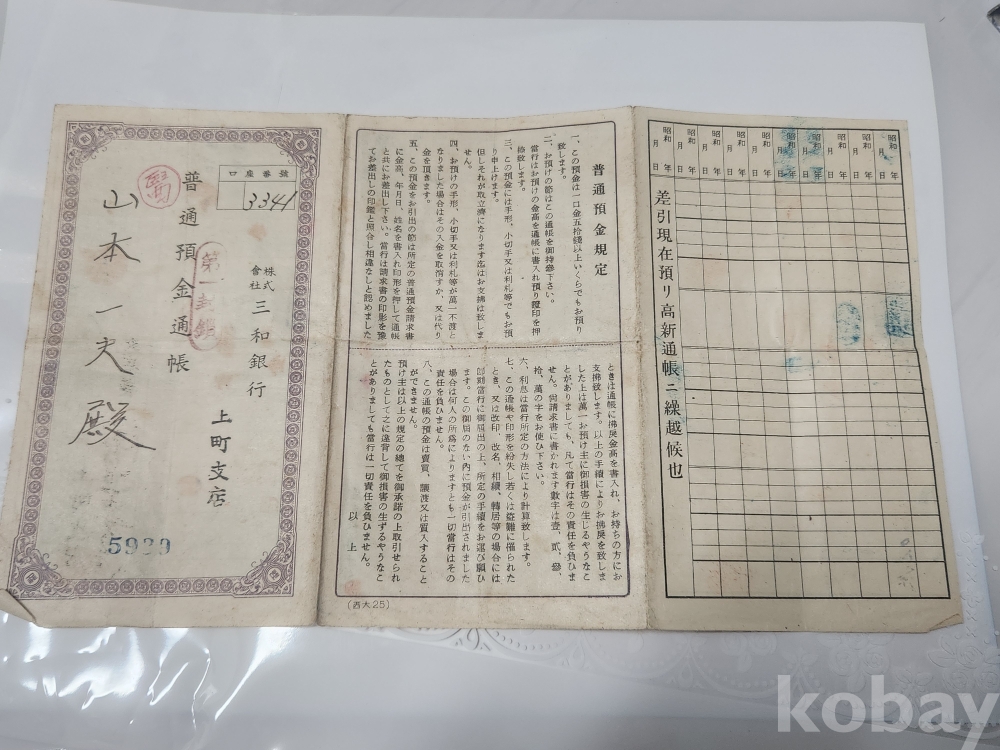 口座番號
3341
普通預金通帳
第一封鎖
株式會社三和銀行
上町支店
山本一夫殿
5939
普通預金規定
一、この預金は一口金五拾錢以上いくらでもお預り
致します。
二、お預けの節はこの通帳を御持參下さい。
當行はお預けの金高を通帳に書入れ預り證印を押
捺致します。
三、この預金には手形、小切手又は利札等でもお預
り申上げます。
但しそれが取立濟になります迄はお支拂は致しま
せん。
四、お預けの手形、小切手又は利札等が萬一不渡と
なりました場合はその入金を取消すか、又は代り
金を頂きます。
五、この預金をお引出の節は所定の普通預金請求書
に金高、年月日、姓名を書入れ印形を押して通帳
と共にお差出し下さい。當行は請求書の印影を豫
てお差出しの印鑑と照合し相違なしと認めました
ときは通帳に拂戾金高を書入れ、お持ちの方にお
支拂致します。以上の手續によりお拂戾を致しま
した上は萬一お預け主に御損害の生じるやうなこ
とがありましても、凡て當行はその責任を負ひま
せん。尚請求書に書かれます數字は壹、貳、參、
拾、萬の字をお使ひ下さい。
六、利息は當行所定の方法により計算致します。
七、この通帳や印形を紛失し若くは盜難に罹られた
とき、又は改印、改名、相續、轉居等の場合には
卽刻當行に御屆出の上、所定の手續をお運び願ひ
ます。この御屆のない內に預金が引出されました
場合は何人の所爲によりますとも一切當行はその
責任を負ひません。
八、この通帳の預金は賣買、讓渡又は質入すること
ができません。
預け主は以上の規定の總てを御承諾の上取引せられ
たものとして之に違背して御損害の生ずるやうなこ
とがありましても當行は一切責任を負ひません。
以上
(西大.25)
昭和 年 月 日
昭和 年 月 日
昭和 年 月 日
昭和 年 月 日
昭和 年 月 日
昭和 年 月 日
昭和 年 月 日
昭和 年 月 日
昭和 年 月 日
差引現在預リ高新通帳ニ繰越候也
kobay